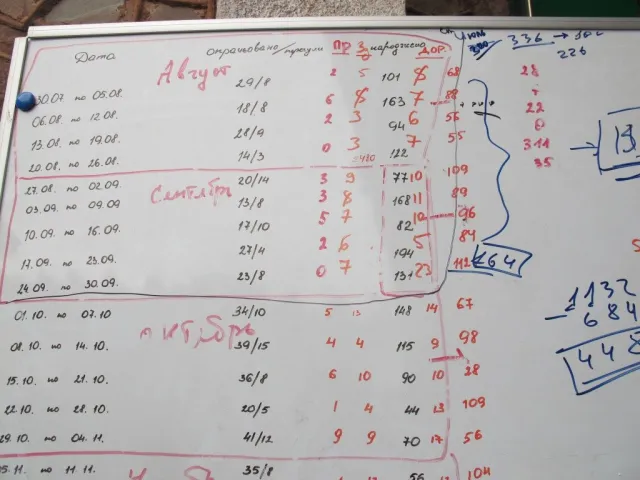 Дата опрашовано/прогули ПР З народжено ДОР.
Август
30.07 по 05.08. 29/8 2 5 101 8 68
06.08. по 12.08. 18/8 6 8 163 7 88
13.08. по 19.08. 28/9 2 3 94 6 56
20.08. по 26.08. 14/3 0 3 122 7 55
Сентябрь
27.08. по 02.09. 20/14 3 9 77 10 109
03.09. по 09.09 13/8 3 8 168 11 89
10.09. по 16.09. 17/10 5 7 82 10 96
17.09. по 23.09. 27/4 2 6 194 5 84
24.09. по 30.09. 23/8 0 7 131 23 112
01.10. по 07.10 34/10 5 13 148 14 67
октябрь
08.10. по 14.10. 39/15 4 4 115 9 98
15.10. по 21.10. 36/8 6 10 90 10 28
22.10. по 28.10. 20/5 1 4 44 13 109
29.10. по 04.11. 41/12 9 9 70 17 56
05.11. по 11.11. 35/8 56 104
336
226
28
22
311
35
13
1132
- 684
448